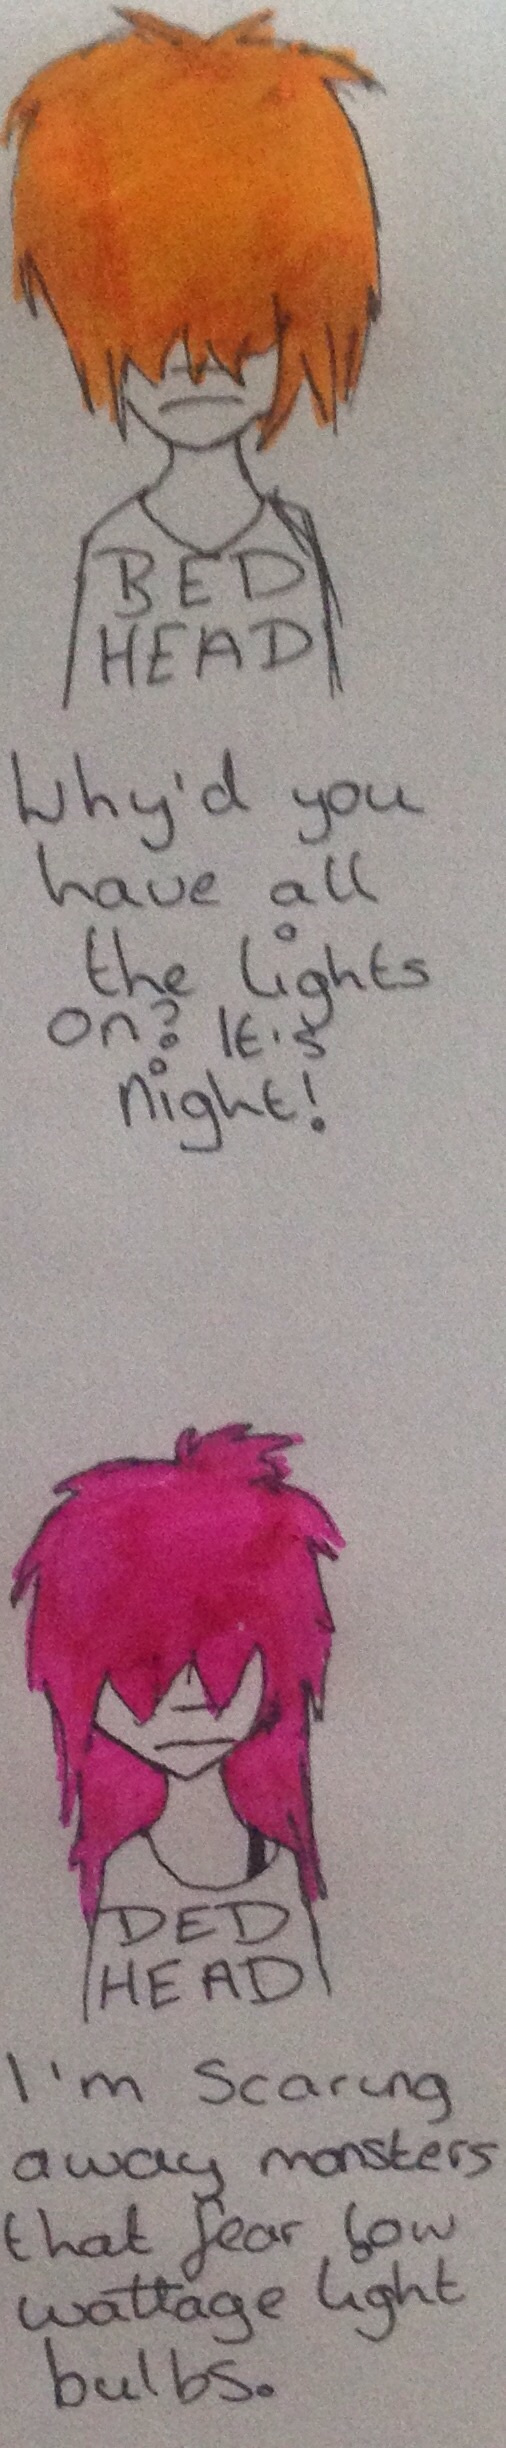 BED
HEAD
Why'd you
have all
the lights
on? It's
night!
DED
HEAD
I'm scaring
away monsters
that fear low
wattage light
bulbs.